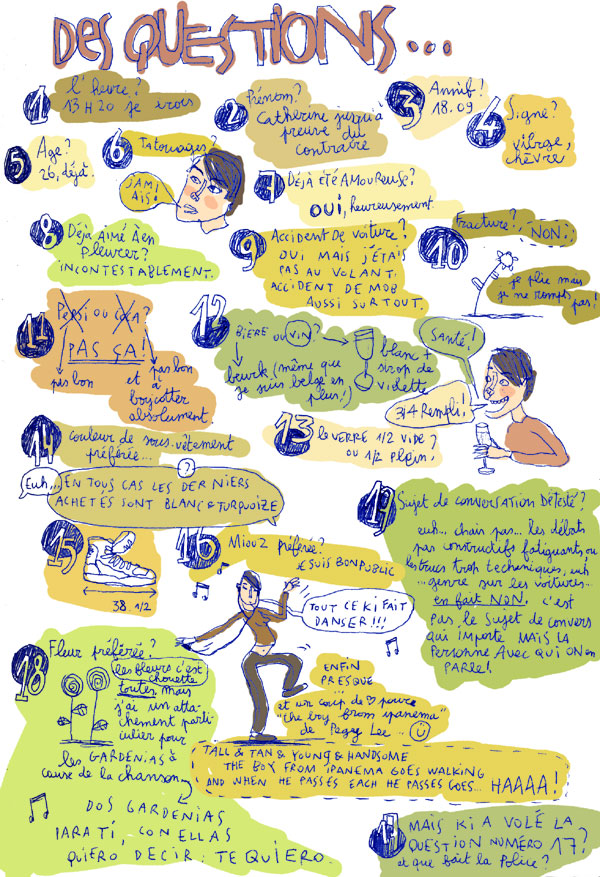 DES QUESTIONS...
1
l'heure?
13H20 je crois
2
Prénom?
Catherine jusqu'à
preuve du
contraire
3
Annif!
18.09
4
Signe?
vierge,
chèvre
5
Age?
26, déjà.
6
Tatouages?
JAMAIS!
7
Déjà été AMOUREUSE?
OUI, heureusement.
8
Déjà Aimé À en
pleurer?
INCONTESTABLEMENT.
9
Accident de voiture?
OUI MAIS J'ÉTAIS
PAS AU VOLANT,
ACCIDENT DE MOB
AUSSI SURTOUT.
10
Fracture?, NON!
je plie mais
je ne romps pas!
11
Pepsi ou coca?
PAS ÇA!
pas bon
pas bon
et à
boycotter
absolument.
12
Bière ou vin?
beurk (même que
je suis belge en
plus!)
blanc +
sirop de
violette
Santé!
3/4 Rempli!
13
le verre 1/2 vide?
ou 1/2 plein?
14
couleur de sous-vêtement
préférée...
?
Euh... EN TOUS CAS LES DERNIERS
ACHETÉS SONT BLANC & TURQUOIZE
15
38.1/2
16
Miouz préférée?
JE SUIS BON PUBLIC
TOUT CE KI FAIT
DANSER!!!
ENFIN
PRESQUE
et un coup de pouce
"the boy from ipanema"
de Peggy Lee...
TALL & TAN & YOUNG & HANDSOME
THE BOY FROM IPANEMA GOES WALKING
AND WHEN HE PASSES EACH HE PASSES GOES... HAAAA!
19
Sujet de conversation détesté?
euh... chais pas... les débats
pas constructifs fatiguants, ou
les trucs trop techniques, euh
...genre sur les voitures...
en fait NON, c'est
pas le sujet de convers
qui importe MAIS LA
Personne Avec qui ON en
PARLE!
18
Fleur préférée?
les fleurs c'est
chouette
toutes, mais
j'ai un atta-
chement parti-
culier pour
les GARDENIAS à
cause de la chanson
DOS GARDENIAS
PARA TI, CON ELLAS
QUIERO DECIR: TE QUIERO.
17
MAIS KI A VOLÉ LA
QUESTION NUMÉRO 17?
et que fait la Police?